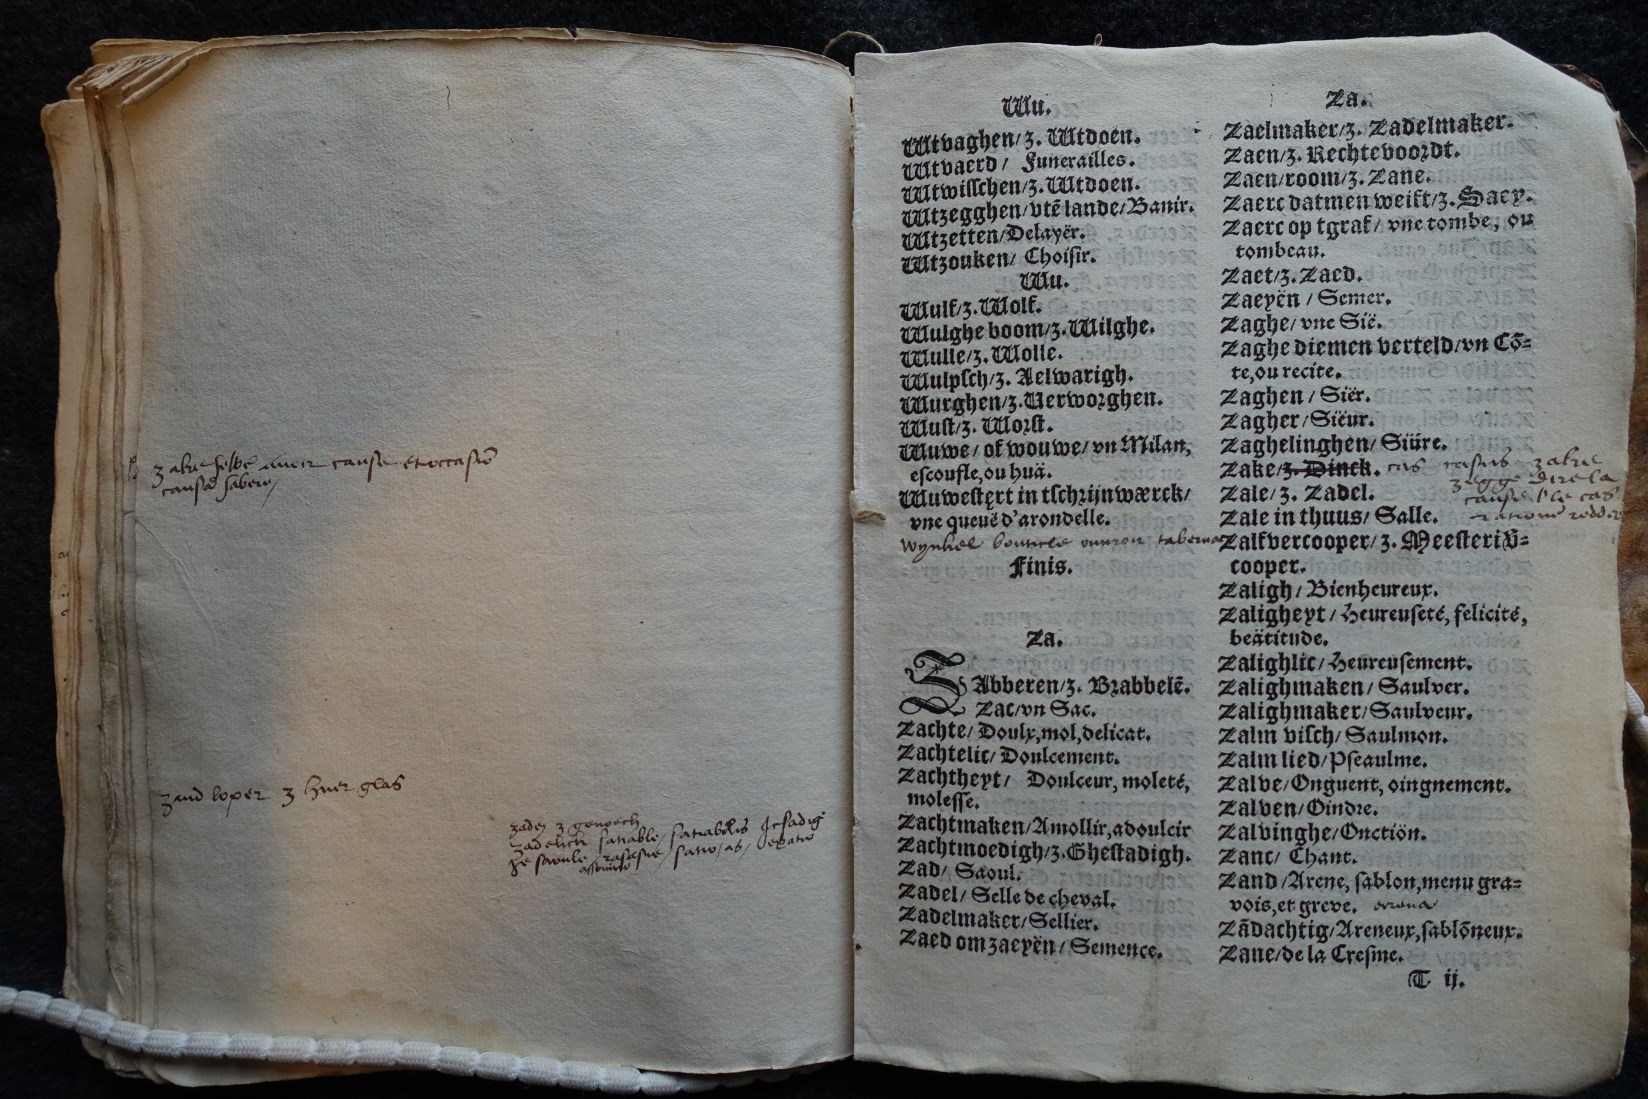 zake hebbe avoir cause et occasiõ
causã habere
zand loper z huer glas
zadelick satiable satiabilis
Wu.
Wtvaghen/z. Wtdoen.
Wtvaerd/ Funerailles.
Wtwisschen/z. Wtdoen.
Wtzegghen/vtē lande/Banir.
Wtzetten/Delayër.
Wtzouken/ Choisir.
Wu.
Wulf/z. Wolf.
Wulghe boom/z. Wilghe.
Wulle/z. Wolle.
Wulpsch/z. Aelwarigh.
Wurghen/z. Verworghen.
Wust/z. Worst.
Wuwe/ of wouwe/ vn Milan,
escoufle, ou huä.
Wuwestęrt in tschrijnwærck/
vne queuë d'arondelle.
Wynkel bouticle
Finis.
Za.
ZAbberen/z. Brabbelē.
Zac/vn Sac.
Zachte/ Doulx, mol, delicat.
Zachtelic/ Doulcement.
Zachtheyt/ Doulceur, moleté,
molesse.
Zachtmaken/Amollir, adoulcir
Zachtmoedigh/z. Ghestadigh.
Zad/ Saoul.
Zadel/ Selle de cheval.
Zadelmaker/Sellier.
Zaed om zaeyën/ Semence.
Za.
Zaelmaker/z. Zadelmaker.
Zaen/z. Rechtevoordt.
Zaen/room/z. Zane.
Zaerc datmen weift/z. Saey.
Zaerc op tgraf/ vne tombe, ou
tombeau.
Zaet/z. Zaed.
Zaeyën / Semer.
Zaghe/ vne Sië.
Zaghe diemen verteld/vn Cõ=
te, ou recite.
Zaghen / Siër.
Zagher/ Siëur.
Zaghelinghen/ Siüre.
Zake/z. Dinck. cas casus zake
zegge dire la
cause le cas
Zale/ z. Zadel.
Zale in thuus/ Salle.
Zalfvercooper/ z. Meesteriṽ=
cooper.
Zaligh/ Bienheureux.
Zaligheyt / Heureuseté, felicité,
beätitude.
Zalighlic/ Heureusement.
Zalighmaken/ Saulver.
Zalighmaker/ Saulveur.
Zalm visch/ Saulmon.
Zalm lied/ Pseaulme.
Zalve/ Onguent, oingnement.
Zalven/ Oindre.
Zalvinghe/ Onctiön.
Zanc/ Chant.
Zand /Arene, sablon, menu gra=
vois, et greve. arena
Zãdachtig/ Areneux, sablõneux.
Zane/ de la Cresme.
T ij.